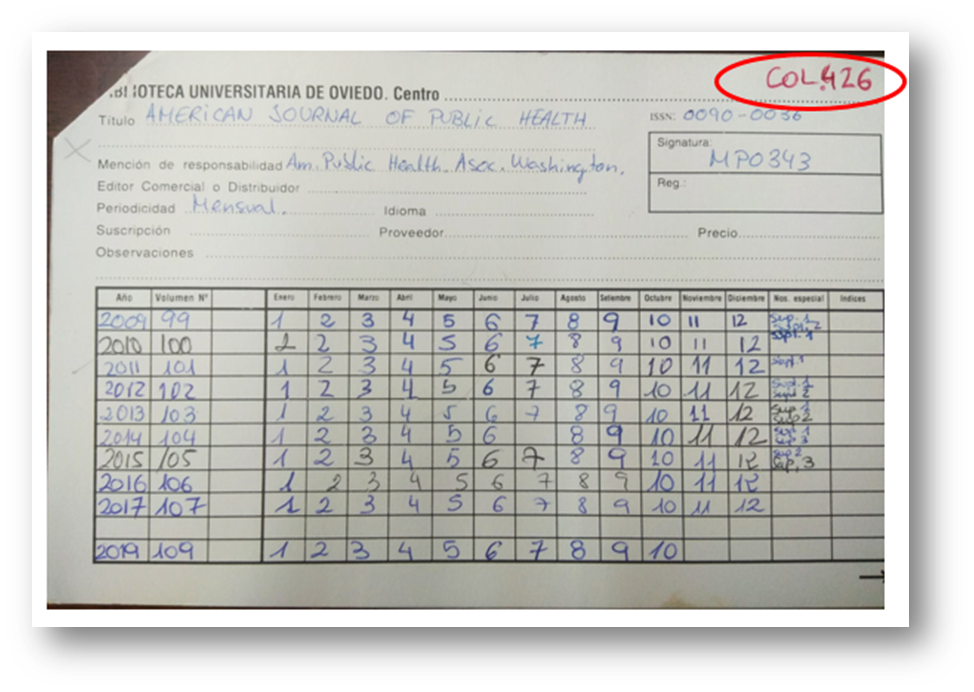 COL.426
BIBLIOTECA UNIVERSITARIA DE OVIEDO. Centro
Título AMERICAN JOURNAL OF PUBLIC HEALTH ISSN: 0090-0036
Signatura: MP0343
Mención de responsabilidad Am. Public Health. Asoc. Washington.
Reg.:
Editor Comercial o Distribuidor
Periodicidad Mensual. Idioma
Suscripción Proveedor Precio
Observaciones
Año Volumen Nº Enero Febrero Marzo Abril Mayo Junio Julio Agosto Setiembre Octubre Noviembre Diciembre Nos. especial Indices
2009 99 1 2 3 4 5 6 7 8 9 10 11 12 Sup. 1 Supl. 2
2010 100 2 3 4 5 6 7 8 9 10 11 12 Supl. 1
2011 101 1 2 3 4 5 6 7 8 9 10 11 12 Supl. 1
2012 102 1 2 3 4 5 6 7 8 9 10 11 12 Supl. 1 Supl 2
2013 103 1 2 3 4 5 6 7 8 9 10 11 12 Sup 1 Sup 2
2014 104 1 2 3 4 5 6 8 9 10 11 12
2015 105 1 2 3 4 5 6 7 8 9 10 11 12 Sup 2 Sup, 3
2016 106 1 2 3 4 5 6 7 8 9 10 11 12
2017 107 1 2 3 4 5 6 7 8 9 10 11 12
2019 109 1 2 3 4 5 6 7 8 9 10